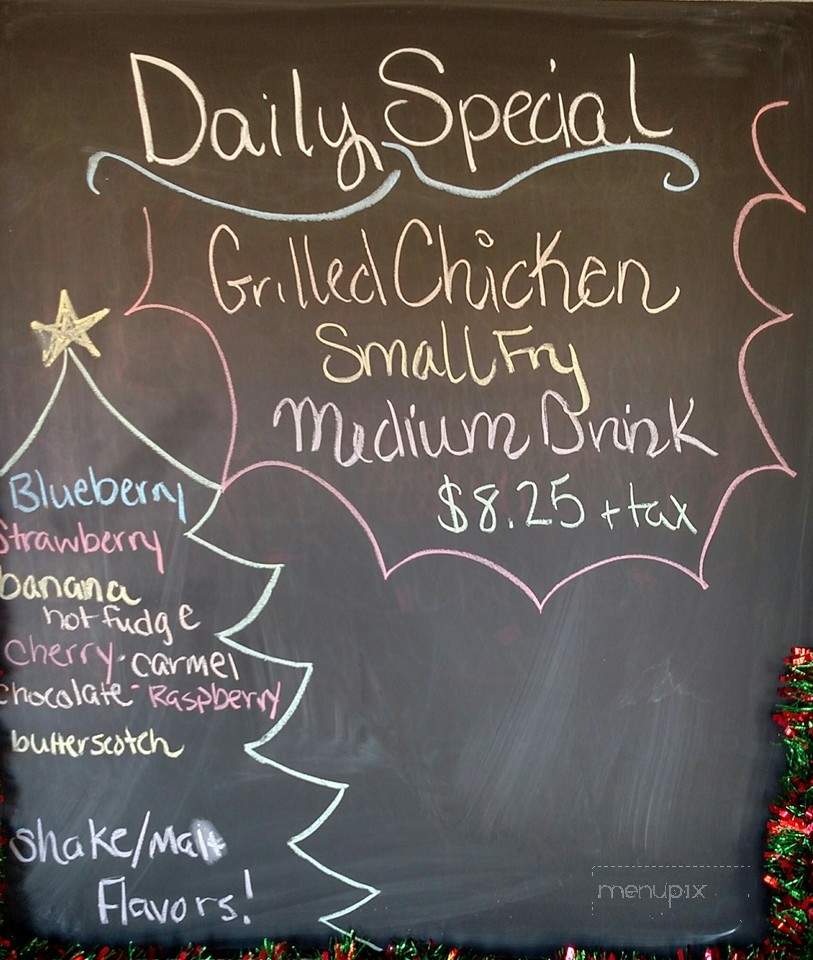 Daily Special
Grilled Chicken
Small Fry
Medium Drink
$8.25 + tax
Blueberry
Strawberry
banana
hot fudge
Cherry - carmel
chocolate - Raspberry
butterscotch
Shake/Malt
Flavors!
menupix